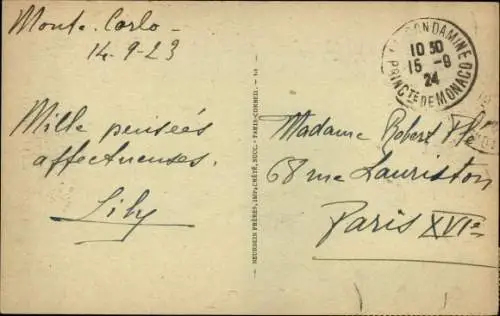 Monte-Carlo -
14-9-23
Mille pensées
affectueuses.
Lily
NEURDEIN FRÈRES, IMP. CRÉTÉ, SUCC. - PARIS-CORBEIL.
LA CONDAMINE
10 30
15 -9
24
PRINCTÉ DE MONACO
Madame Robert Plé
68 rue Lauriston
Paris XVIe